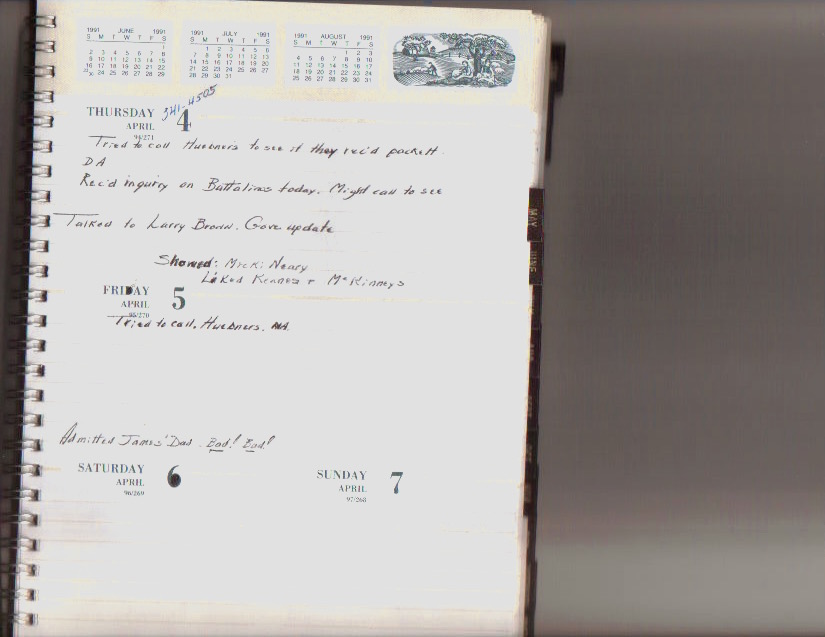 1991 JUNE 1991
S M T W T F S
1
2 3 4 5 6 7 8
9 10 11 12 13 14 15
16 17 18 19 20 21 22
24 25 26 27 28 29
1991 JULY 1991
S M T W T F S
1 2 3 4 5 6
7 8 9 10 11 12 13
14 15 16 17 18 19 20
21 22 23 24 25 26 27
28 29 30 31
1991 AUGUST 1991
S M T W T F S
1 2 3
4 5 6 7 8 9 10
11 12 13 14 15 16 17
18 19 20 21 22 23 24
25 26 27 28 29 30 31
341-4505
THURSDAY 4
APRIL
94/271
Tried to call Huebners to see if they rec'd packett.
DA
Rec'd inquiry on Battalinos today. Might call to see
Talked to Larry Brown. Gave update
Showed: Micki Neary
Liked Keanes + McKinneys
FRIDAY 5
APRIL
95/270
Tried to call. Huebners. NA.
Admitted James' Dad. Bad! Bad!
SATURDAY 6
APRIL
96/269
SUNDAY 7
APRIL
97/268
MAY
JUNE